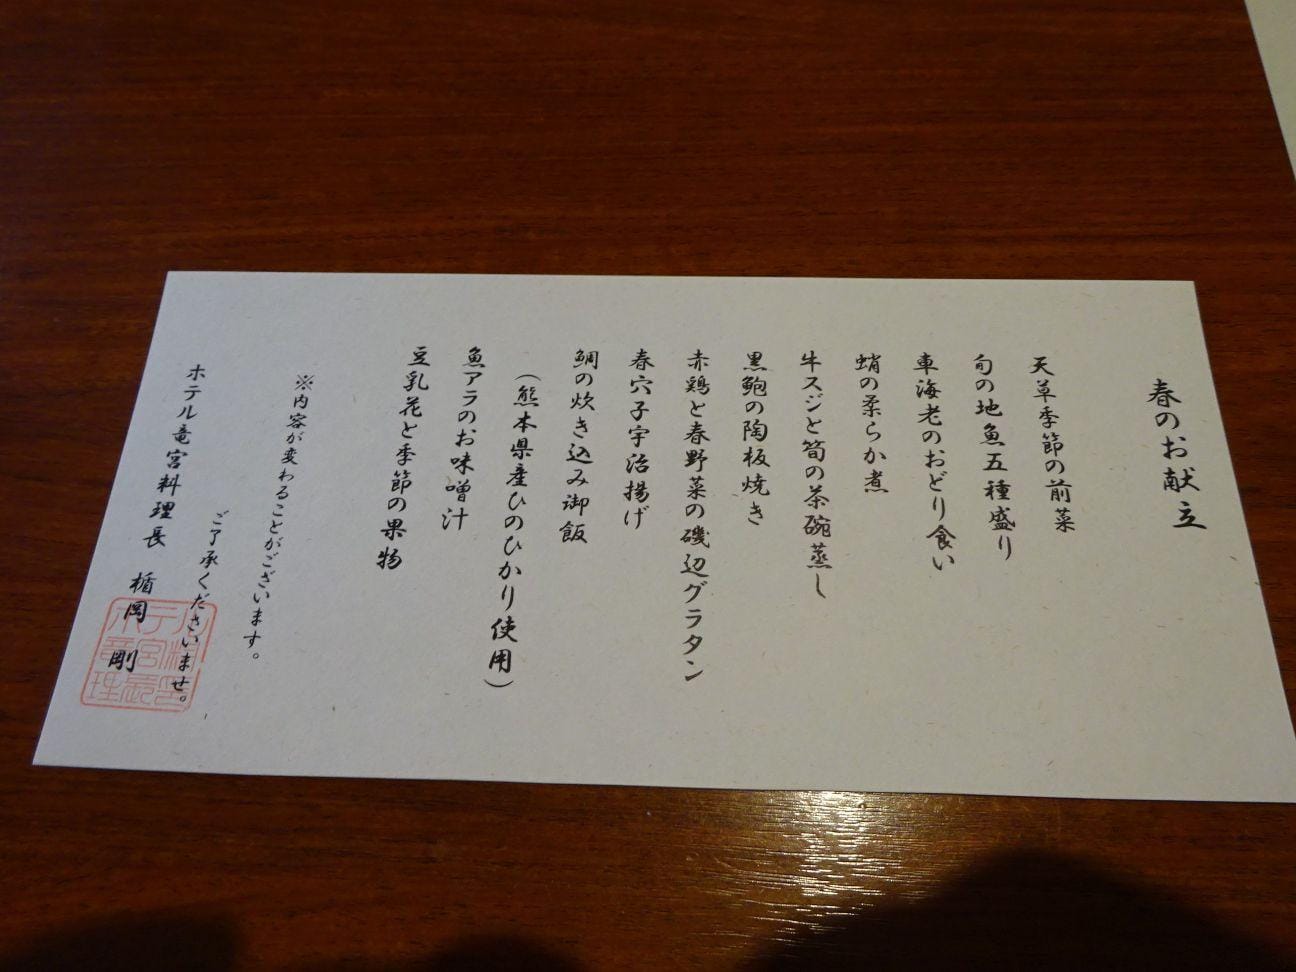 春のお献立
天草季節の前菜
旬の地魚五種盛り
車海老のおどり食い
蛸の柔らか煮
牛スジと筍の茶碗蒸し
黒鮑の陶板焼き
赤鶏と春野菜の磯辺グラタン
春穴子宇治揚げ
鯛の炊き込み御飯
（熊本県産ひのひかり使用）
魚アラのお味噌汁
豆乳花と季節の果物
※内容が変わることがございます。
ご了承くださいませ。
ホテル竜宮料理長 楯岡 剛